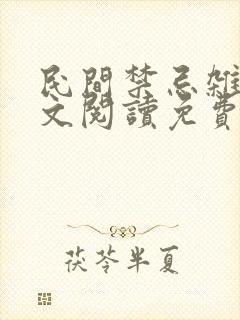 民間禁忌雜
文閱讀免費
茯苓半夏